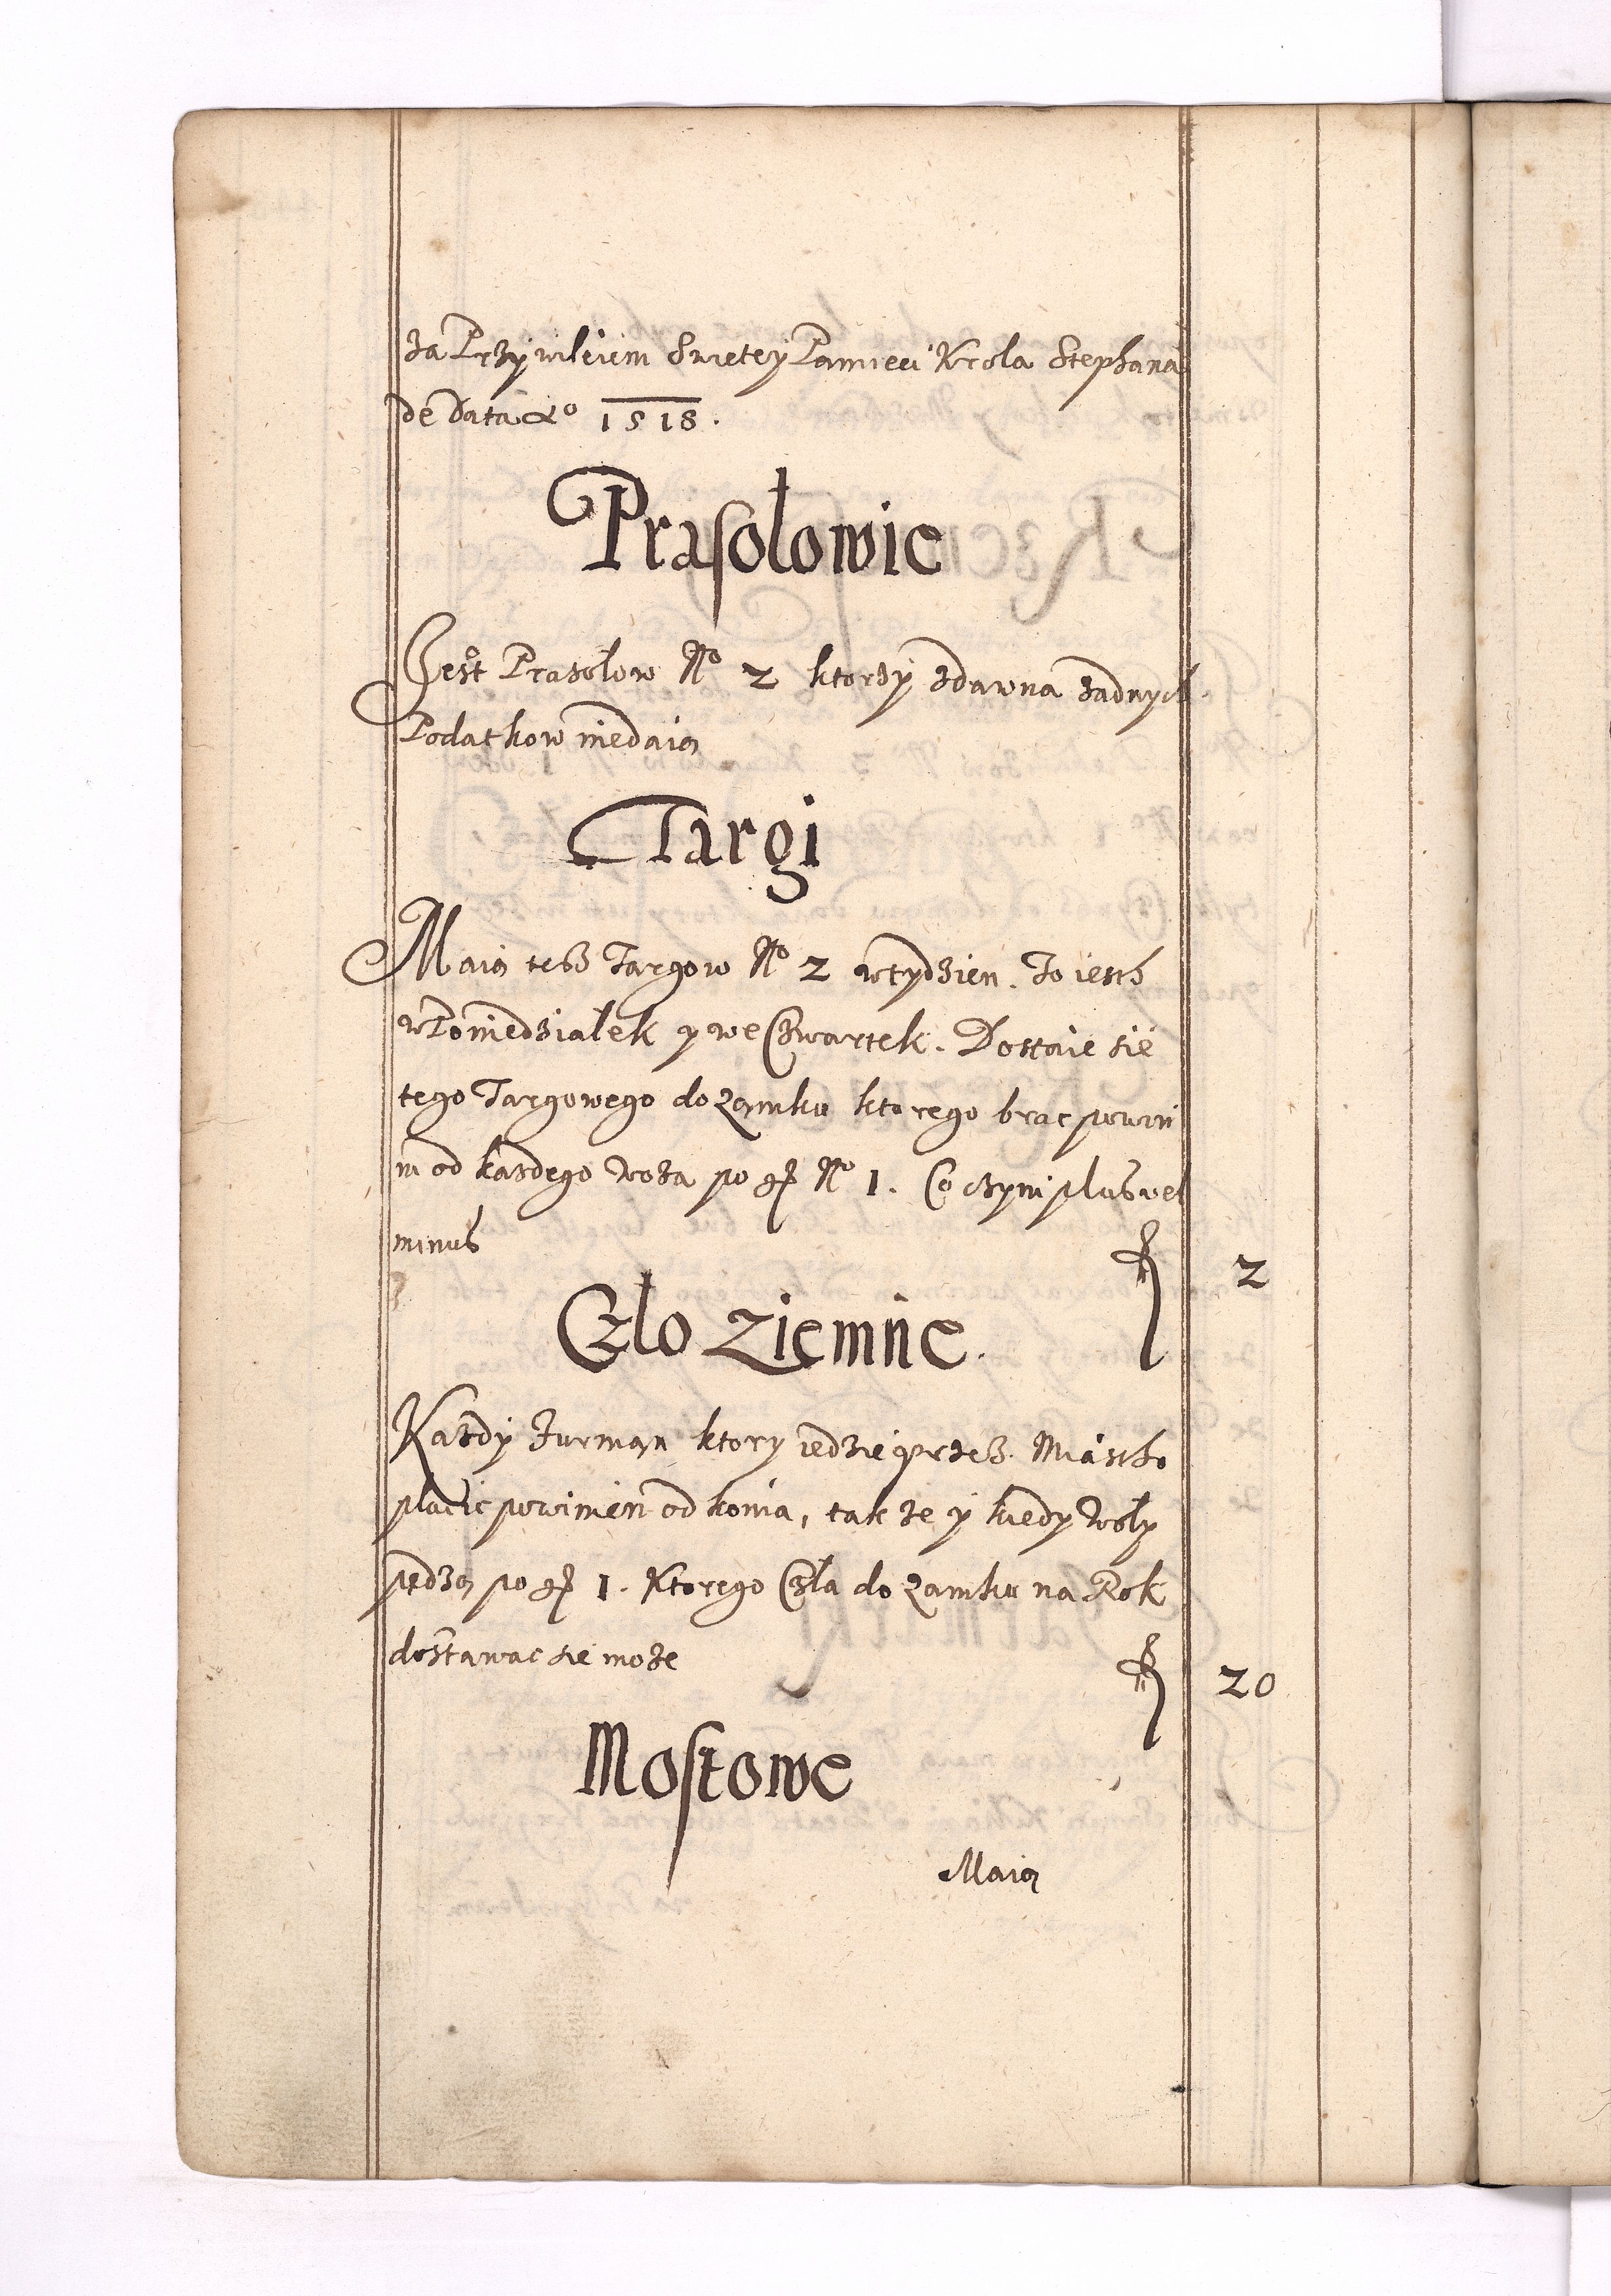 za Przywileiem Swietey Pamieci Krola Stephana
de Data Ao 1518.
Prasołowie
Jest Prasołow No 2 ktorzy zdawna zadnych
Podatkow niedaią
Targi
Maią tesz Targow No 2 wtydzien. To iesth
wPoniedziałek y we Czwartek. Dostaie sie
tego Targowego do Zamku ktorego brac powin
ni od kazdego woza po gr No 1. Co czyni plus vel
minus fl 2
Czło Ziemne.
Kazdy Furman ktory iedzie przesz Miastho
płacic powinien od konia, tak ze y kiedy woły
pędzą po gr 1. Ktorego Czła do Zamku na Rok
dostawac sie moze fl 20
Mostowe
Maią